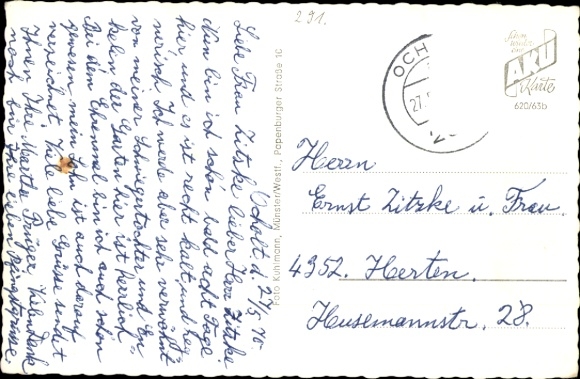 291.
Ocholt. d. 27/5. 70
Liebe Frau Zitzke lieber Herr Zitzke
Nun bin ich schon bald acht Tage
hier, und es ist recht kalt, und reg-
nerisch Ich werde aber sehr verwöhnt
von meiner Schwiegertochter und En-
keln der Garten hier ist herrlich
Bei dem Ehrenmal bin ich auch schon
gewesen mein Sohn ist auch darauf
verzeichnet. Viele liebe Grüße sendet
Ihnen Ihre Martha Krüger. Vielen Dank
noch für
Foto Kuhlmann, Münster/Westf., Papenburger Straße 10
OCH
27.
Schon wieder eine
AKU
Karte
620/63b
Herrn
Ernst Zitzke u. Frau.
4352. Herten.
Heusemannstr. 28.